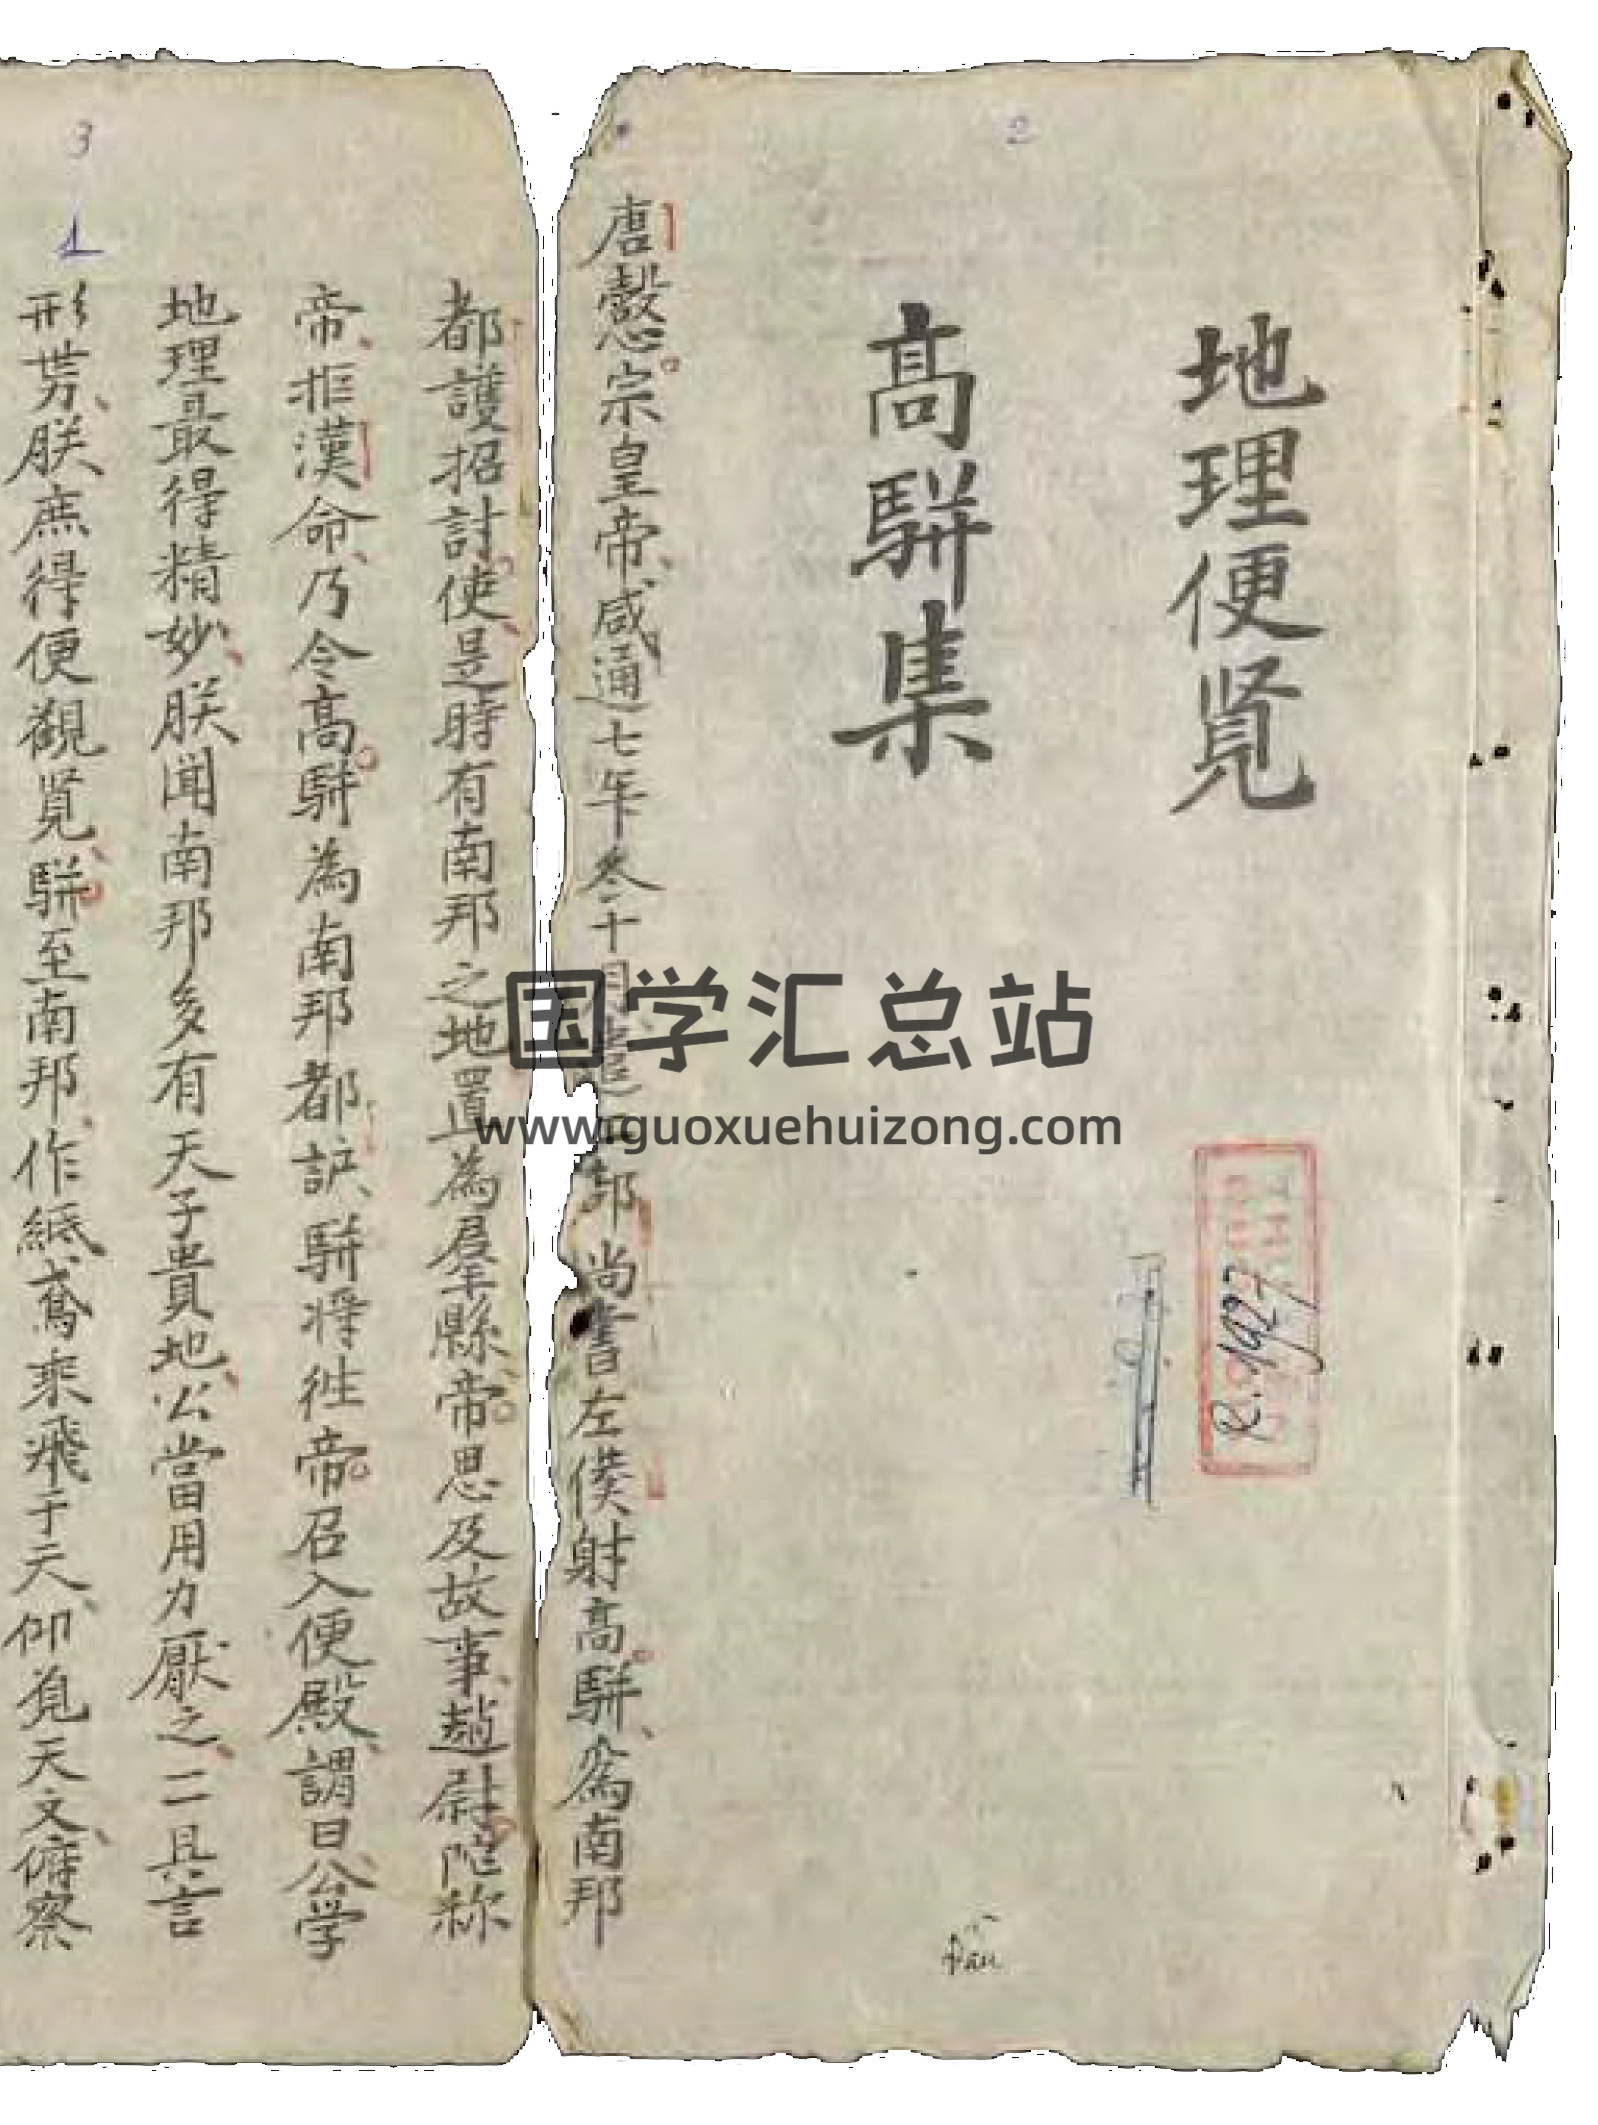 2
地理便覧
高駢集
R.1927
Đấu
唐懿宗皇帝咸通七年冬十月 部尚書左僕射高駢為南邦
3
1
都護招討使是時有南邦之地置為郡縣帝思及故事趙尉陀称
帝拒漢命乃令高駢為南邦都護駢将徃帝召入便殿謂曰公学
地理最得精妙朕聞南邦多有天子貴地公當用力厭之一一具言
形势朕庶得便觀覧駢至南邦作紙鳶乘飛于天仰見天文俯察
国学汇总站
www.guoxuehuizong.com